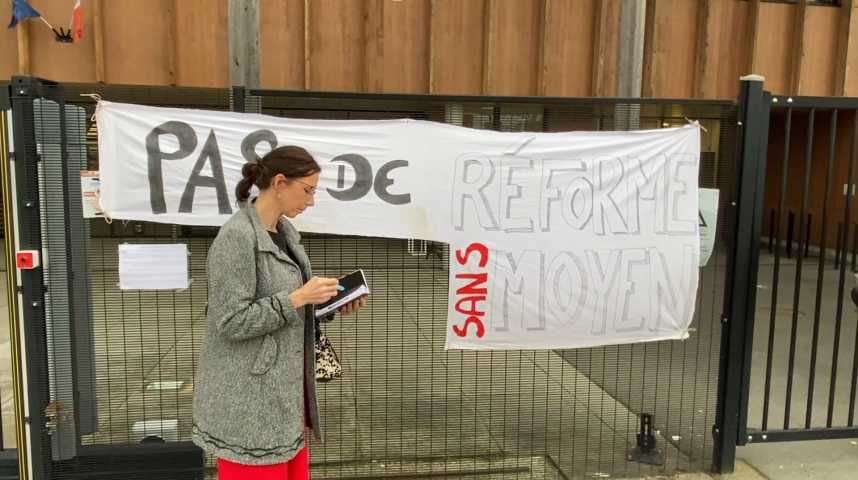 PAS DE RÉFORME
SANS MOYEN